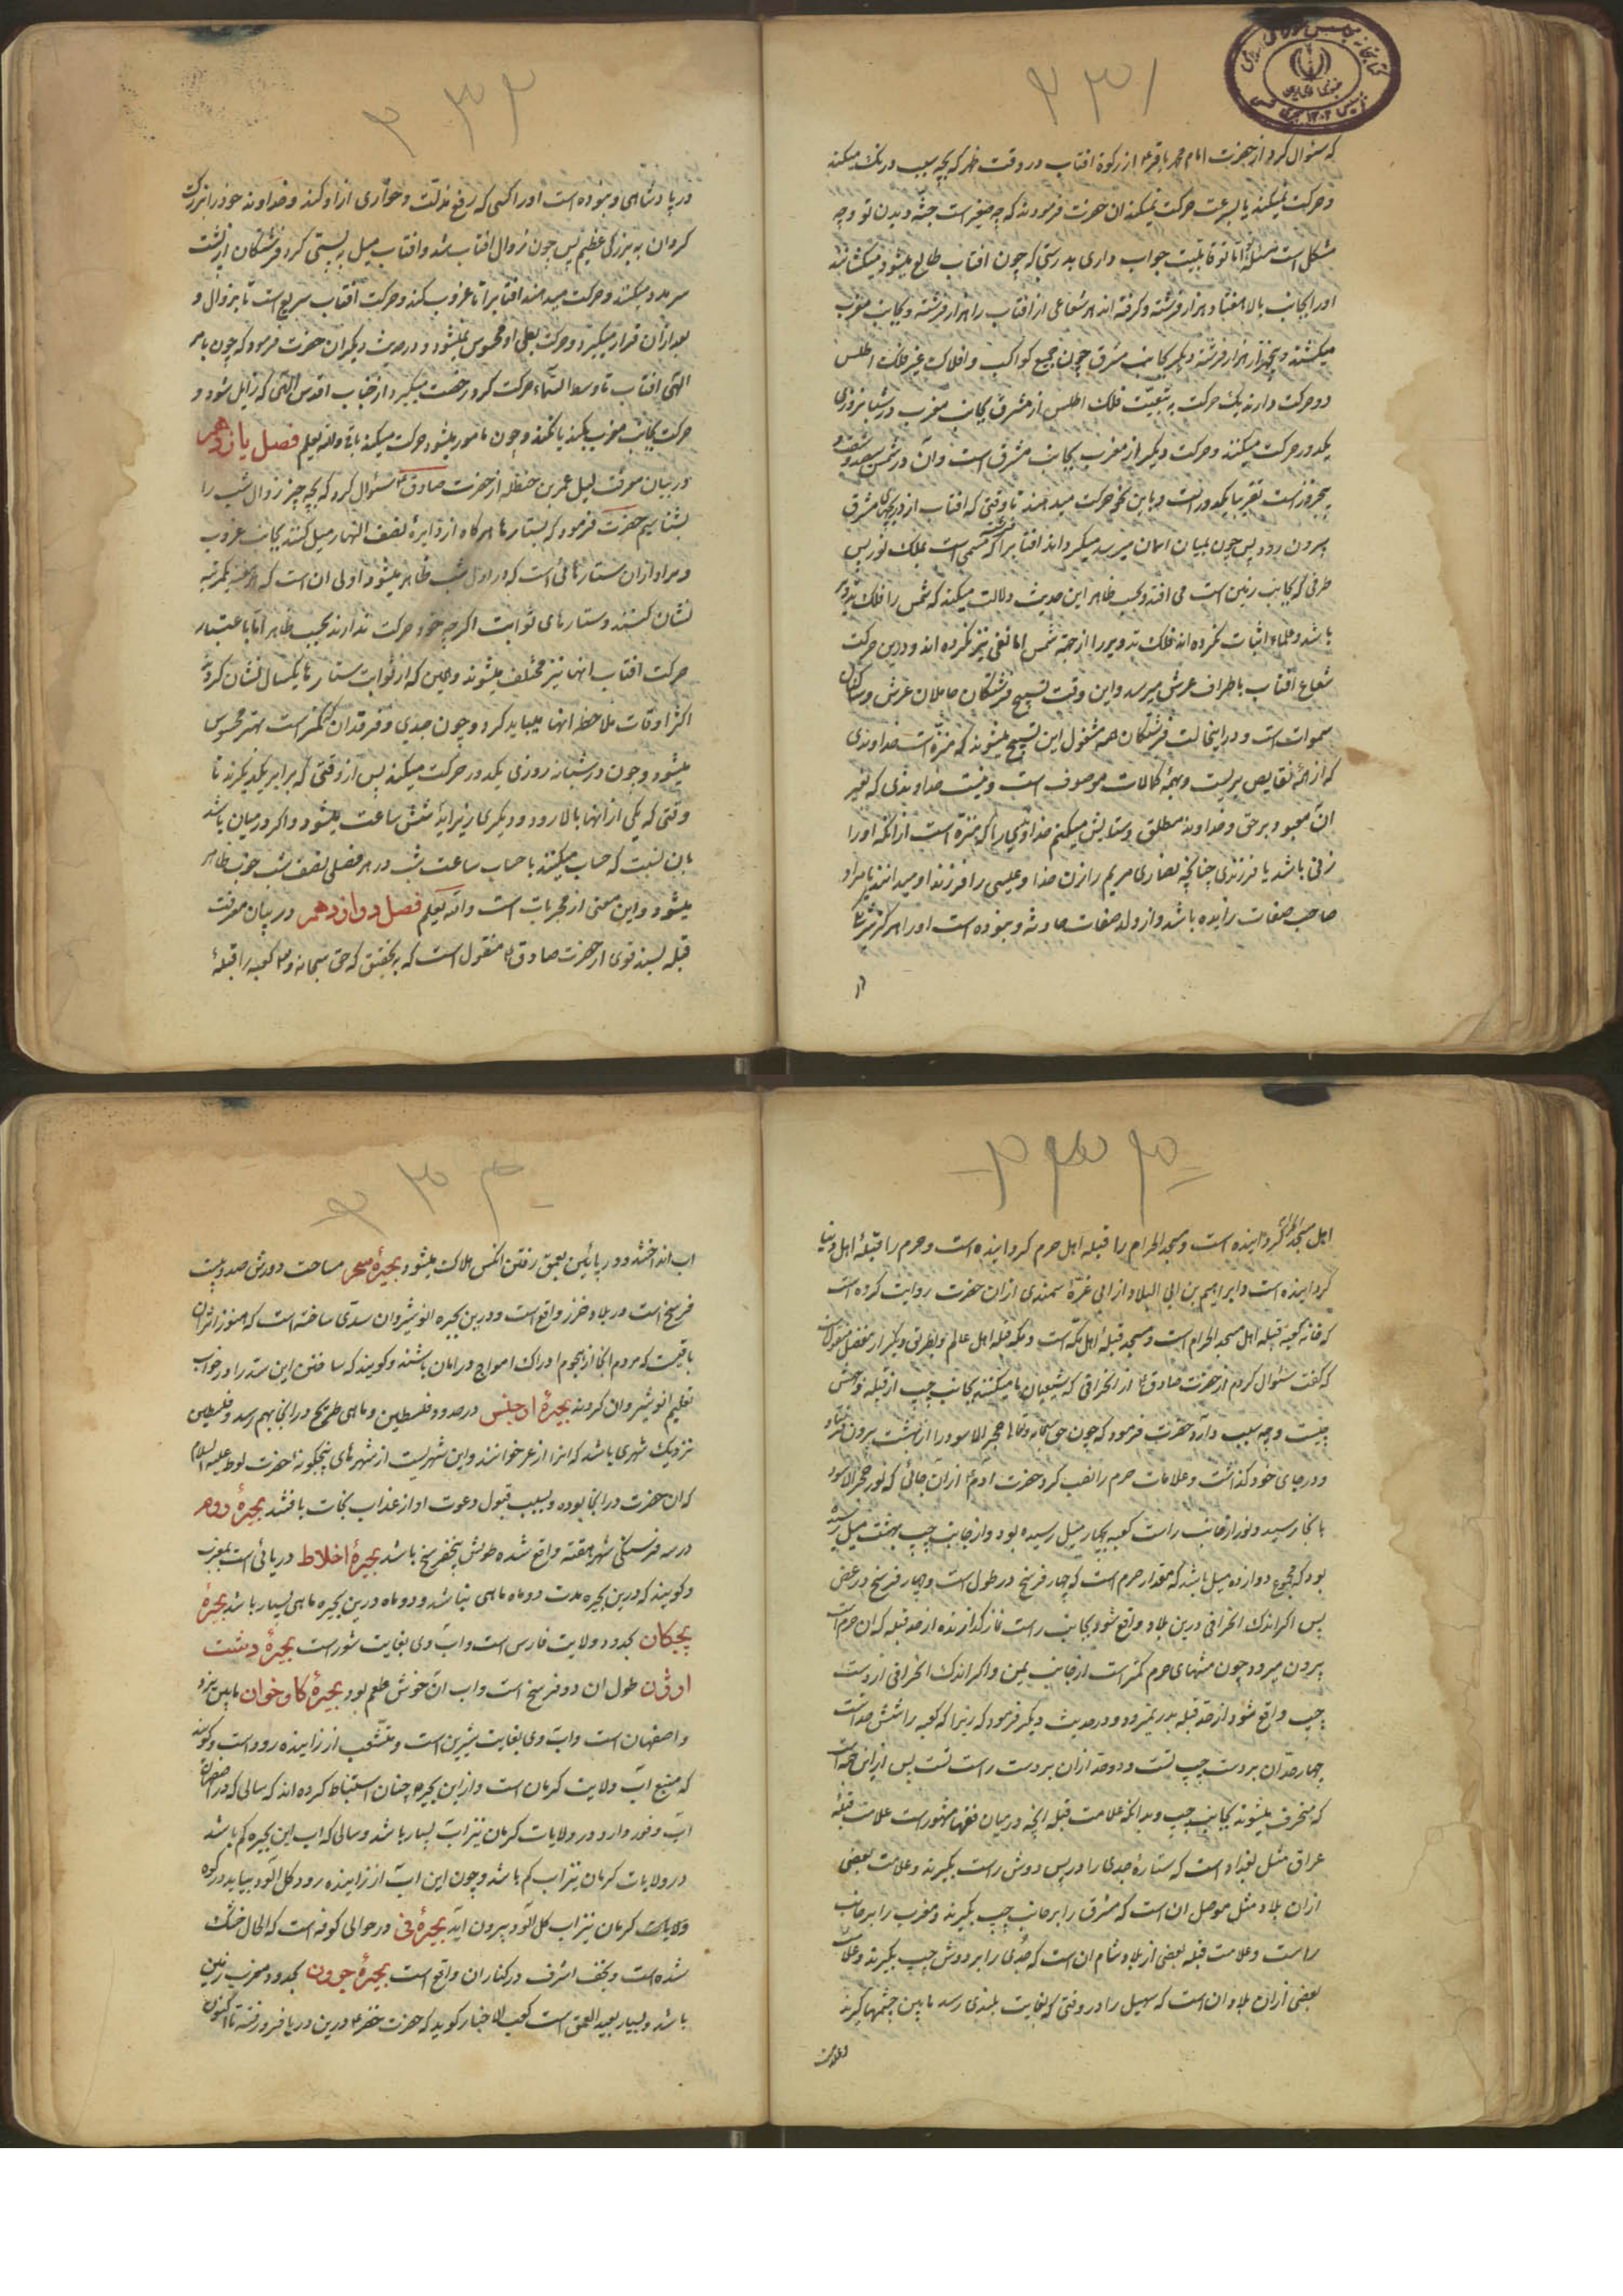 ۲۳۱
که سئوال کرد از حضرت امام محمد باقر ع از رکود افتاب در وقت ظهر که بچه سبب درنک میکند
و حرکت نمیکند یا بسرعت حرکت نمیکند ان حضرت فرمودند که چه صغیر است جثه و بدن تو و چه
مشکل است مسئله تو اما تو قابلیت جواب داری بدرستی که چون افتاب طالع میشود میکشانند
اورا بجانب بالا هفتاد هزار فرشته و کرفته اند هر شعاعی از افتاب را هزار فرشته و بجانب مغرب
میکشند و پنجهزار هزار فرشته دیکر بجانب مشرق چون جمیع کواکب و افلاک غیر فلک اطلس
دو حرکت دارند یک حرکت به تبعیت فلک اطلس از مشرق بجانب مغرب در شبانروزی
یکدور حرکت میکنند و حرکت دیکر از مغرب بجانب مشرق است و آن در شمس سیصد و شصت و
پنجروز است تقریبا یکدور است و باین نحو حرکت میدهند تا وقتی که افتاب از دریچهای مشرق
بیرون رود پس چون بمیان اسمان میرسد میکرداند افتاب را فرشته که مسمی است بملک نور پس
طرفی که بجانب زمین است می افتد و بحسب ظاهر این حدیث دلالت میکند که شمس را فلک تدویر
باشد و علماء اثبات نکرده اند فلک تدویر را از جهة شمس اما نفی نیز نکرده اند و در این حرکت
شعاع آفتاب باطراف عرش میرسد و این وقت تسبیح فرشتکان حاملان عرش و ساکنان
سموات است و در اینحالت فرشتکان همه مشغول این تسبیح میشوند که منزه است خداوندی
که از همه نقایص بریست و بهمه کمالات موصوف است و نیست خداوندی که بغیر
ان معبود برحق و خداوند مطلق و ستایش میکنم خداوندی را که منزه است از آنکه اورا
زنی باشد یا فرزندی چنانچه نصاری مریم را زن خدا و عیسی را فرزند او میدانند یا مراد
صاحب صفات زاینده باشد و از ولد صفات حادثه و نبوده است اورا هرکز شریک
در
۲۳۲
در پادشاهی و نبوده است اورا کسی که رفع مذلت و خواری از او کند و خداوند خود را بزرک
کردان به بزرکی عظیم پس چون زوال افتاب شد و افتاب میل به پستی کرد فرشتکان از پشت
سر مدد میکنند و حرکت میدهند افتابرا تا غروب کند و حرکت آفتاب سریع است تا بزوال و
بعد از آن قرار میکیرد و حرکت بطی او محسوس نمیشود و در حدیث دیکر ان حضرت فرمود که چون بامر
الهی افتاب تا وسط السماء حرکت کرد رخصت میکیرد از جناب اقدس الهی که زایل شود و
حرکت بجانب مغرب بکند یا نکند و چون مامور میشود حرکت میکند باقی والله یعلم فصل یازدهم
در بیان معرفت لیل عمر بن حنظله از حضرت صادق ع سئوال کرد که بچه چیز زوال شب را
بشناسیم حضرت فرمود که بستارها هرکاه از دایره نصف النهار میل کنند بجانب غروب
و مراد از ان ستارهائی است که در اول شب ظاهر میشود و اولی ان است که هر شب یکمرتبه
نشان کنند و ستارهای ثوابت اکرچه خود حرکت ندارند بحسب ظاهر اما باعتبار
حرکت افتاب انها نیز مختلف میشوند و همین که از ثوابت ستارها یکسال نشان کردی
اکثر اوقات ملاحظه انها میباید کرد و چون جدی و فرقدان کمتر است بهتر محسوس
میشود و چون در شبانه روزی یکدور حرکت میکنند پس از وقتی که برابر یکدیکرند تا
وقتی که یکی از آنها بالا رود و دیکری بزیر اید شش ساعت میشود و اکر در میان باشد
بان نسبت که حساب میکنند با حساب ساعت شب در هر فصلی نصف شب خوب ظاهر
میشود و این معنی از مجربات است والله یعلم فصل دوازدهم در بیان معرفت
قبله بسند قوی از حضرت صادق ع منقول است که به تحقیق که حق سبحانه و تع کعبه را قبلهٔ
۲۳۳
اهل مسجد الحرام کردانیده است و مسجد الحرام را قبله اهل حرم کردانیده است و حرم را قبلهٔ اهل دنیا
کردانیده است و ابراهیم بن ابی البلاد از ابی غره سمندی از ان حضرت روایت کرده است
که خانه کعبه قبله اهل مسجد الحرام است و مسجد قبله اهل مکه است و مکه قبله اهل عالم و بطریق دیکر از مفضل منقولست
که کفت سئوال کردم از حضرت صادق ع از انحرافی که شیعیان ما میکنند بجانب چپ از قبله و حش
چیست و چه سبب دارد حضرت فرمود که چون حق سبحانه و تعالی حجر الاسود را از بهشت بیرون فرستاد
و در جای خود کذاشت و علامات حرم را نصب کرد حضرت آدم ع از ان جائی که نور حجر الاسود
بانجا رسید و نور از جانب راست کعبه بچهار میل رسیده بود و از جانب چپ بهشت میل رسیده
بود که مجموع دوازده میل باشد که مقدار حرم است که چهار فرسخ در طول است و چهار فرسخ در عرض
پس اکر اندک انحرافی درین بلاد واقع شود بجانب راست نماز کذارنده از حد قبله که ان حرم است
بیرون میرود چون منتهای حرم کمتر است از جانب یمین و اکر اندک انحرافی از دست
چپ واقع شود از حد قبله بدر نمیرود و در حدیث دیکر فرمود که زیرا که کعبه را شش حد است
چهار حد ان بر دست چپ تست و دو حد از ان بر دست راست تست پس از این جهة است
که منحرف میشوند بجانب چپ و بدانکه علامت قبله آنچه در میان فقها مشهور است علامت قبله
عراق مثل بغداد است که ستارهٔ جدی را در پس دوش راست بکیرند و علامت بعضی
از ان بلاد مثل موصل ان است که مشرق را بر جانب چپ بکیرند و مغرب را بر جانب
راست و علامت قبله بعضی از بلاد شام ان است که جدی را بر دوش چپ بکیرند و علامت
بعضی از ان بلاد ان است که سهیل را در وقتی که بغایت بلندی رسد مابین چشمها کیرند
۲۳۴
اب انداختند و در پائین بعمق رفتن انکس هلاک میشود بحیرهٔ سحر مساحت دورش صد و بیست
فرسخ است در بلاد خزر واقع است و درین بحیره انوشیروان سدی ساخته است که هنوز اثر ان
باقیست که مردم انجا از هجوم ادراک امواج در امان باشند و کویند که ساختن این سد را در خواب
تعلیم انوشیروان کردند بحیرهٔ اوجنس در حدود فلسطین و ماهی طریح در انجا بهم رسد و فلسطین
نزدیک شهری باشد که انرا زعر خوانند و این شهریست از شهرهای پنجکونه حضرت لوط علیه السلام
که ان حضرت در انجا بوده و بسبب قبول دعوت او از عذاب نجات یافتند بحیرهٔ دوم
در سه فرسنکی شهر هفته واقع شده طولش پنجفرسخ باشد بحیرهٔ اخلاط دریائی است بمغرب
و کویند که درین بحیره مدت دو ماه ماهی نباشد و دو ماه درین بحیره ماهی بسیار باشد بحیرهٔ
بجکان بحدود ولایت فارس است و آب وی بغایت شور است بحیرهٔ دشت
اوژن طول ان دو فرسخ است و اب ان خوش طعم بود بحیرهٔ کاوخوان مابین یزد
و اصفهان است و آب وی بغایت شیرین است و منشعب از زاینده رود است و کویند
که منبع اب ولایت کرمان است و از این بحیره چنان استنباط کرده اند که سالی که در اصفهان
آب وفور دارد در ولایات کرمان نیز آب بسیار باشد و سالی که اب این بحیره کم باشد
در ولایات کرمان نیز اب کم باشد و چون این آب از زاینده رود کل آلود بیاید در کوه
ولایات کرمان نیز اب کل آلود بیرون آید بحیرهٔ نی در حوالی کوفه است که الحال خشک
شده است و نجف اشرف در کنار ان واقع است بحیرهٔ جرون بحدود مغرب زمین
باشد و بسیار بعید العمق است کعب الاخبار کوید که حضرت خضر ع درین دریا فرو رفته تا اکنون